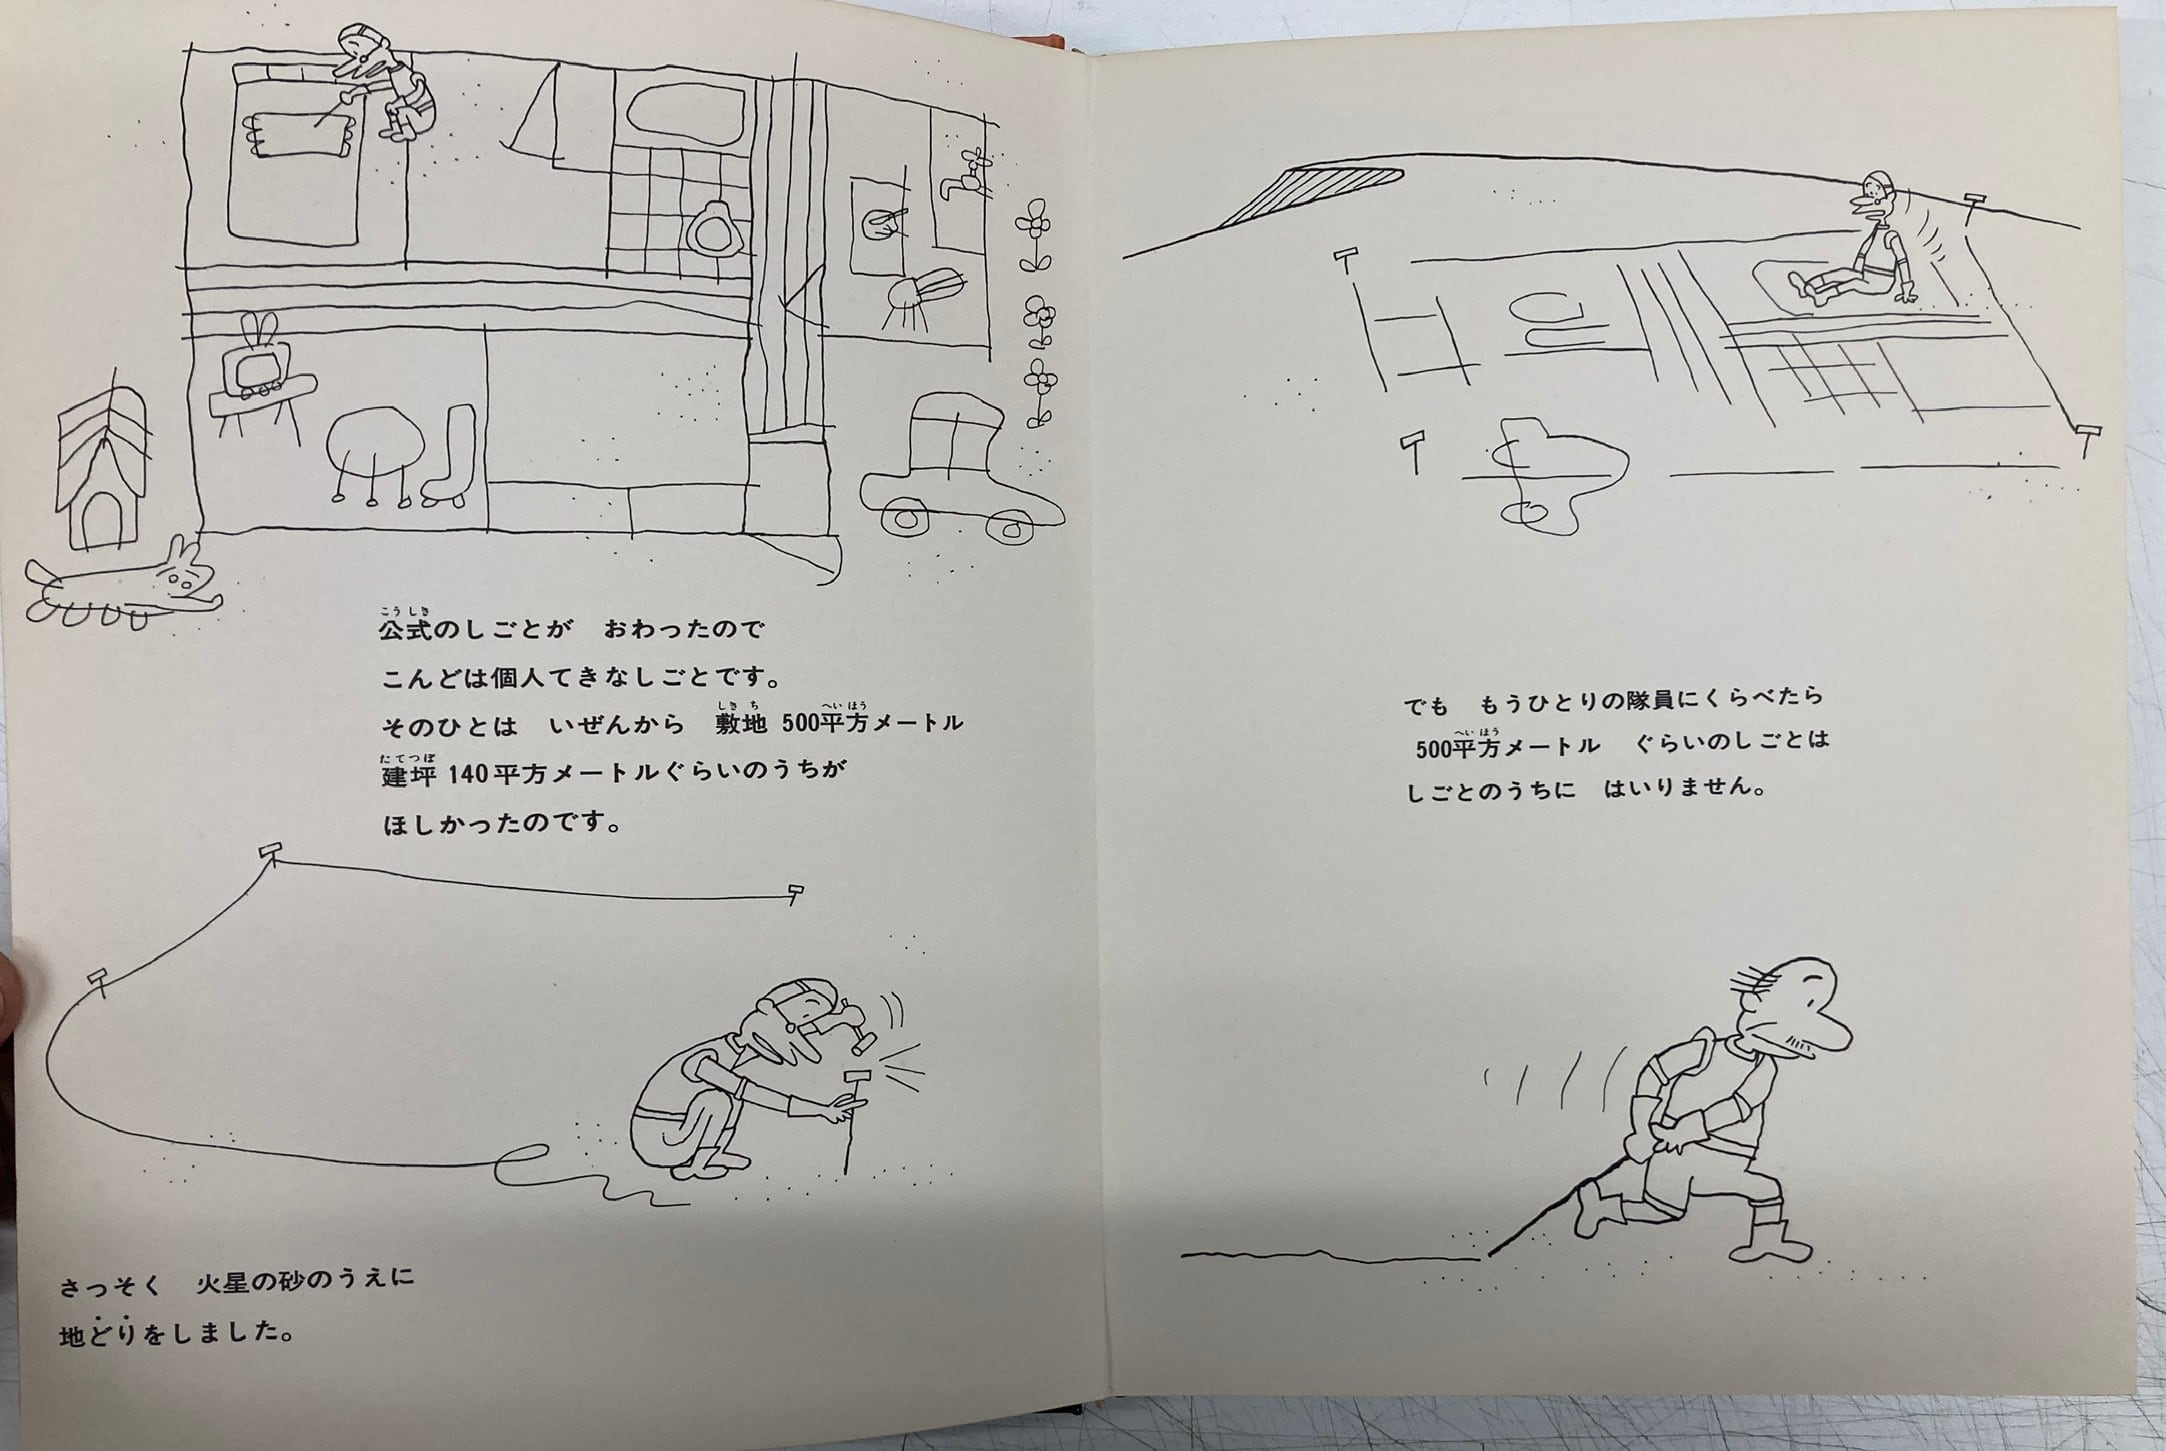 公式のしごとが　おわったので
こんどは個人てきなしごとです。
そのひとは　いぜんから　敷地 500平方メートル
建坪 140平方メートルぐらいのうちが
ほしかったのです。
さっそく　火星の砂のうえに
地どりをしました。
でも　もうひとりの隊員にくらべたら
500平方メートル　ぐらいのしごとは
しごとのうちに　はいりません。